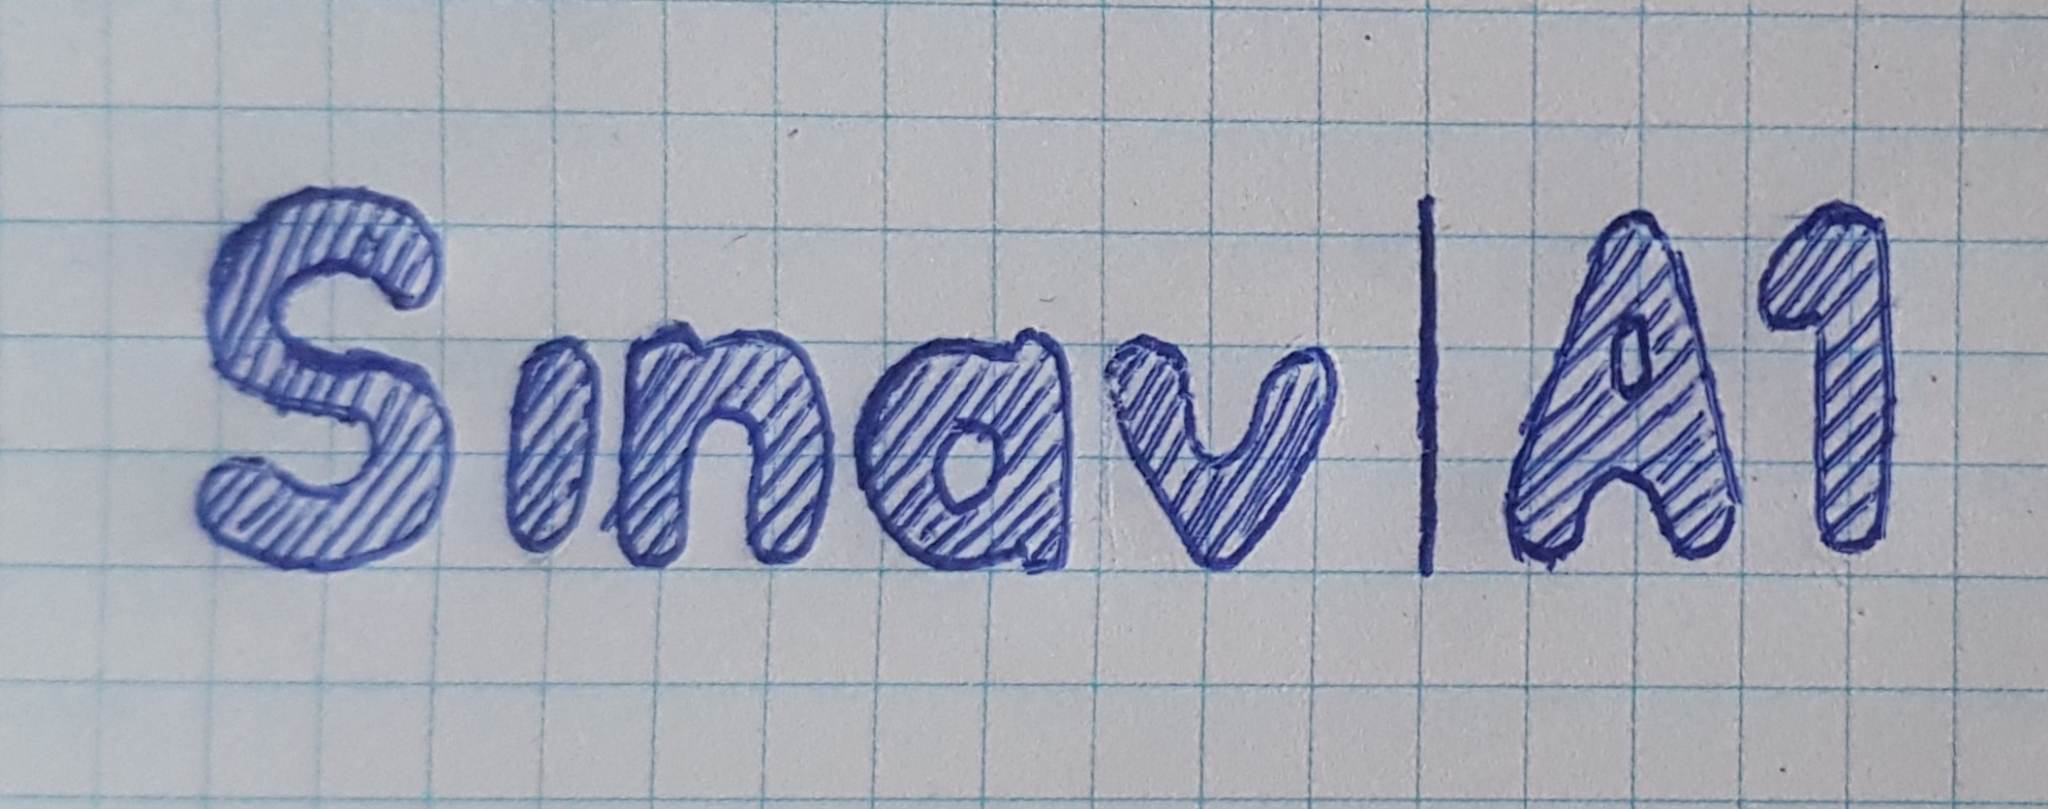 Sınav | A1